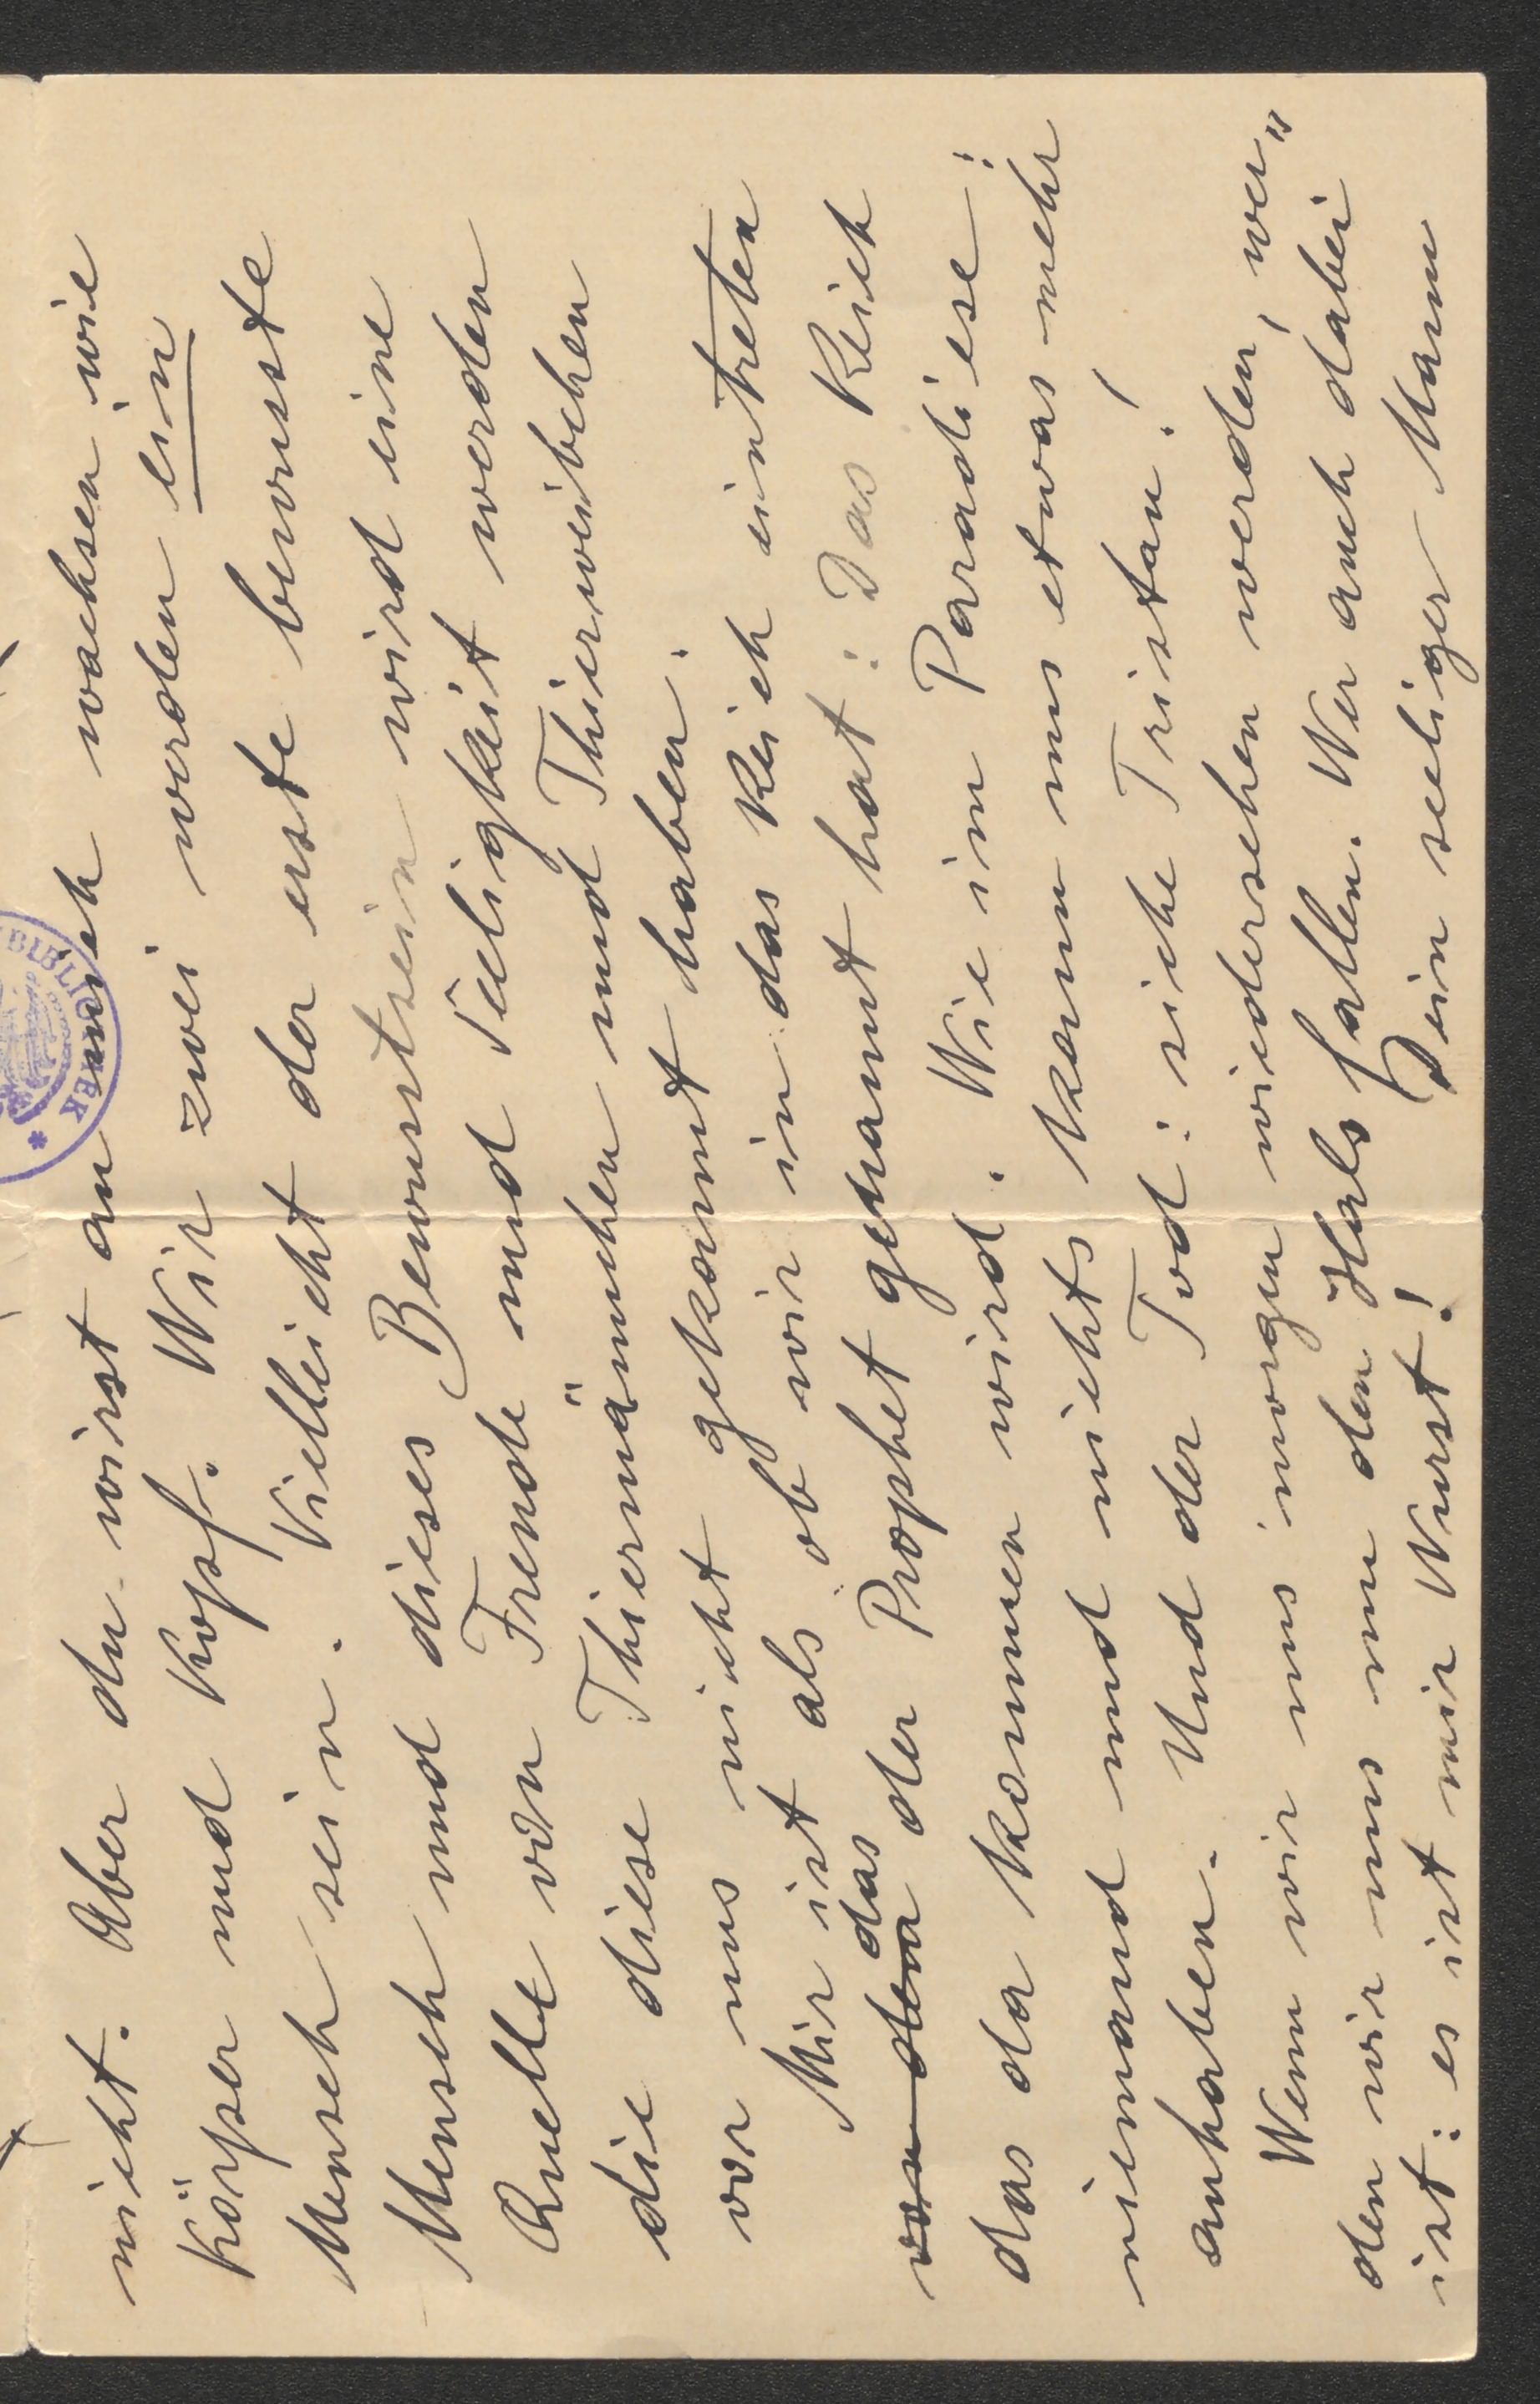 nicht. Aber du wirst an mich wachsen wie
Körper und Kopf. Wir zwei werden ein
Mensch sein. Vielleicht der erste bewusste
Mensch und dieses Bewusstsein wird eine
Quelle von Freude und Seeligkeit werden
die diese Thiermännchen und Thierweibchen
vor uns nicht gekannt haben.
Mir ist als ob wir in das Reich eintreten
von dem das der Prophet genannt hat: Das Reich
das da kommen wird. Wie im Paradiese!
niemand und nichts kann uns etwas mehr
anhaben. Und der Tod: siehe Tristan!
Wenn wir uns morgen wiedersehen werden, wer„
den wir uns um den Hals fallen. Wer auch dabei
ist: es ist mir Wurst! Dein seeliger Mann
BIBLIOTHEK